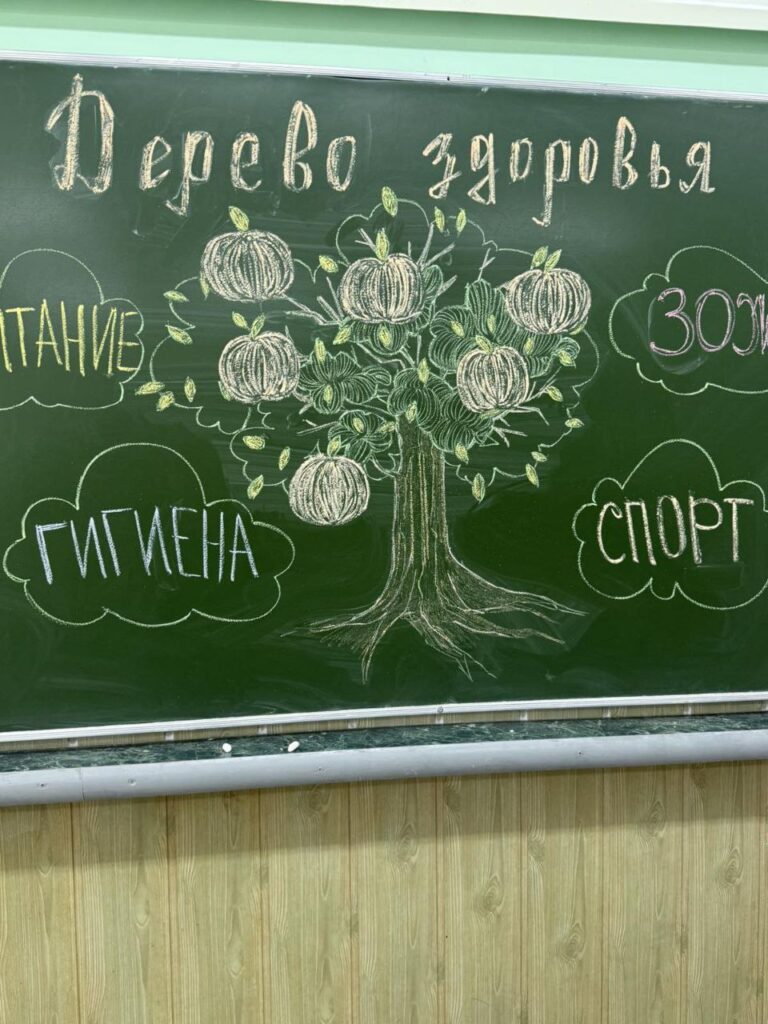 Дерево здоровья
ИТАНИЕ
ЗОЖ
ГИГИЕНА
СПОРТ